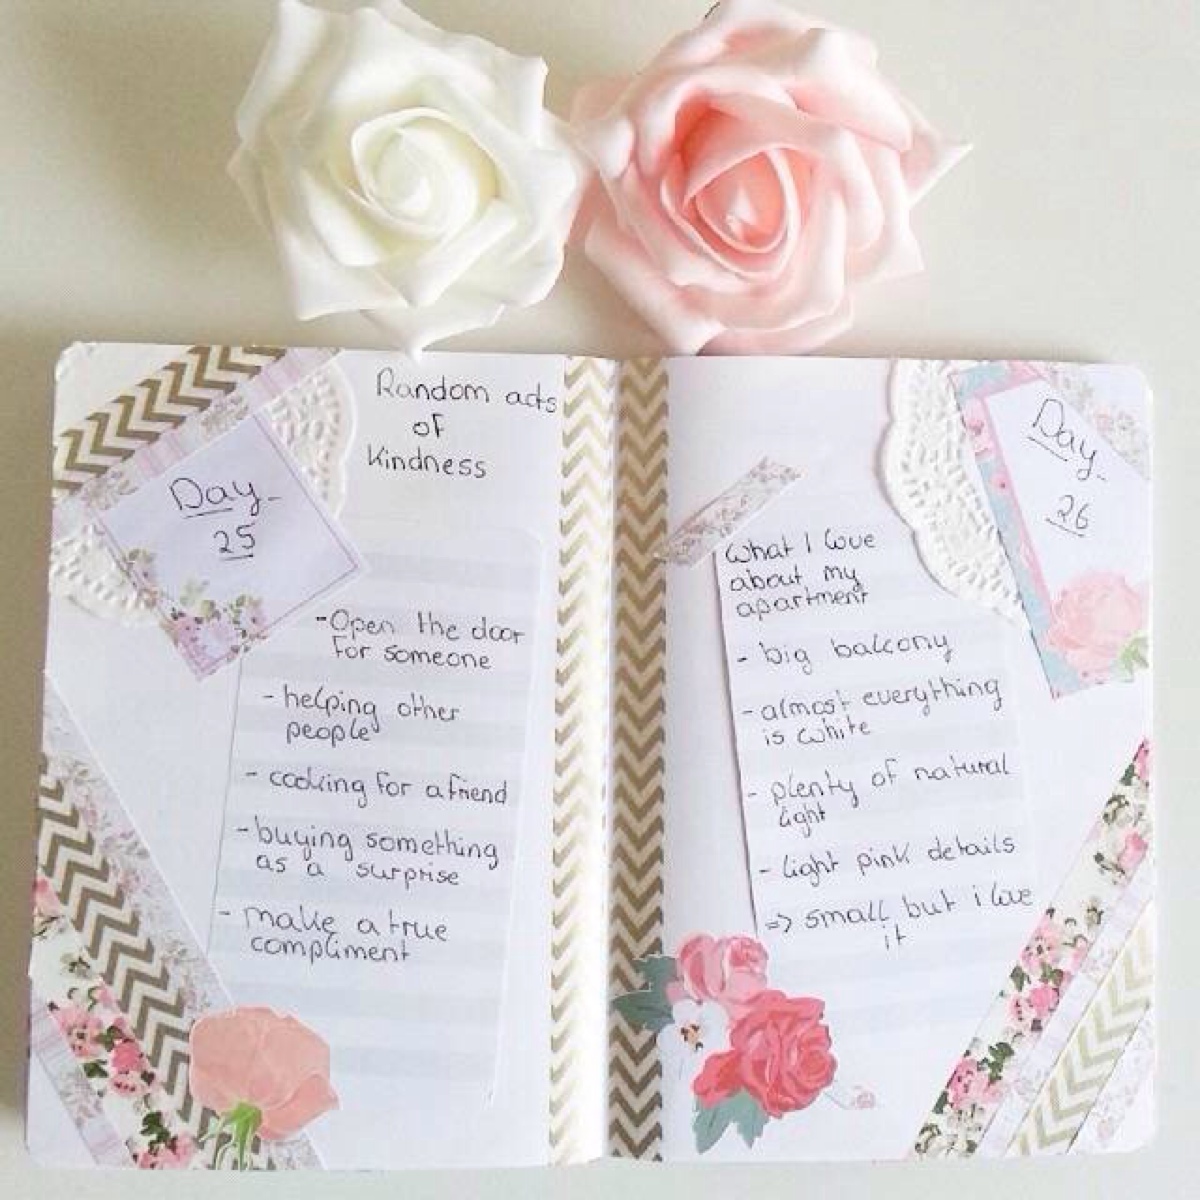 Day
25
Random acts
of
Kindness
- Open the door
for someone
- helping other
people
- cooking for a friend
- buying something
as a surprise
- make a true
compliment
Day
26
What I love
about my
apartment
- big balcony
- almost everything
is white
- plenty of natural
light
- light pink details
=> small but i love
it